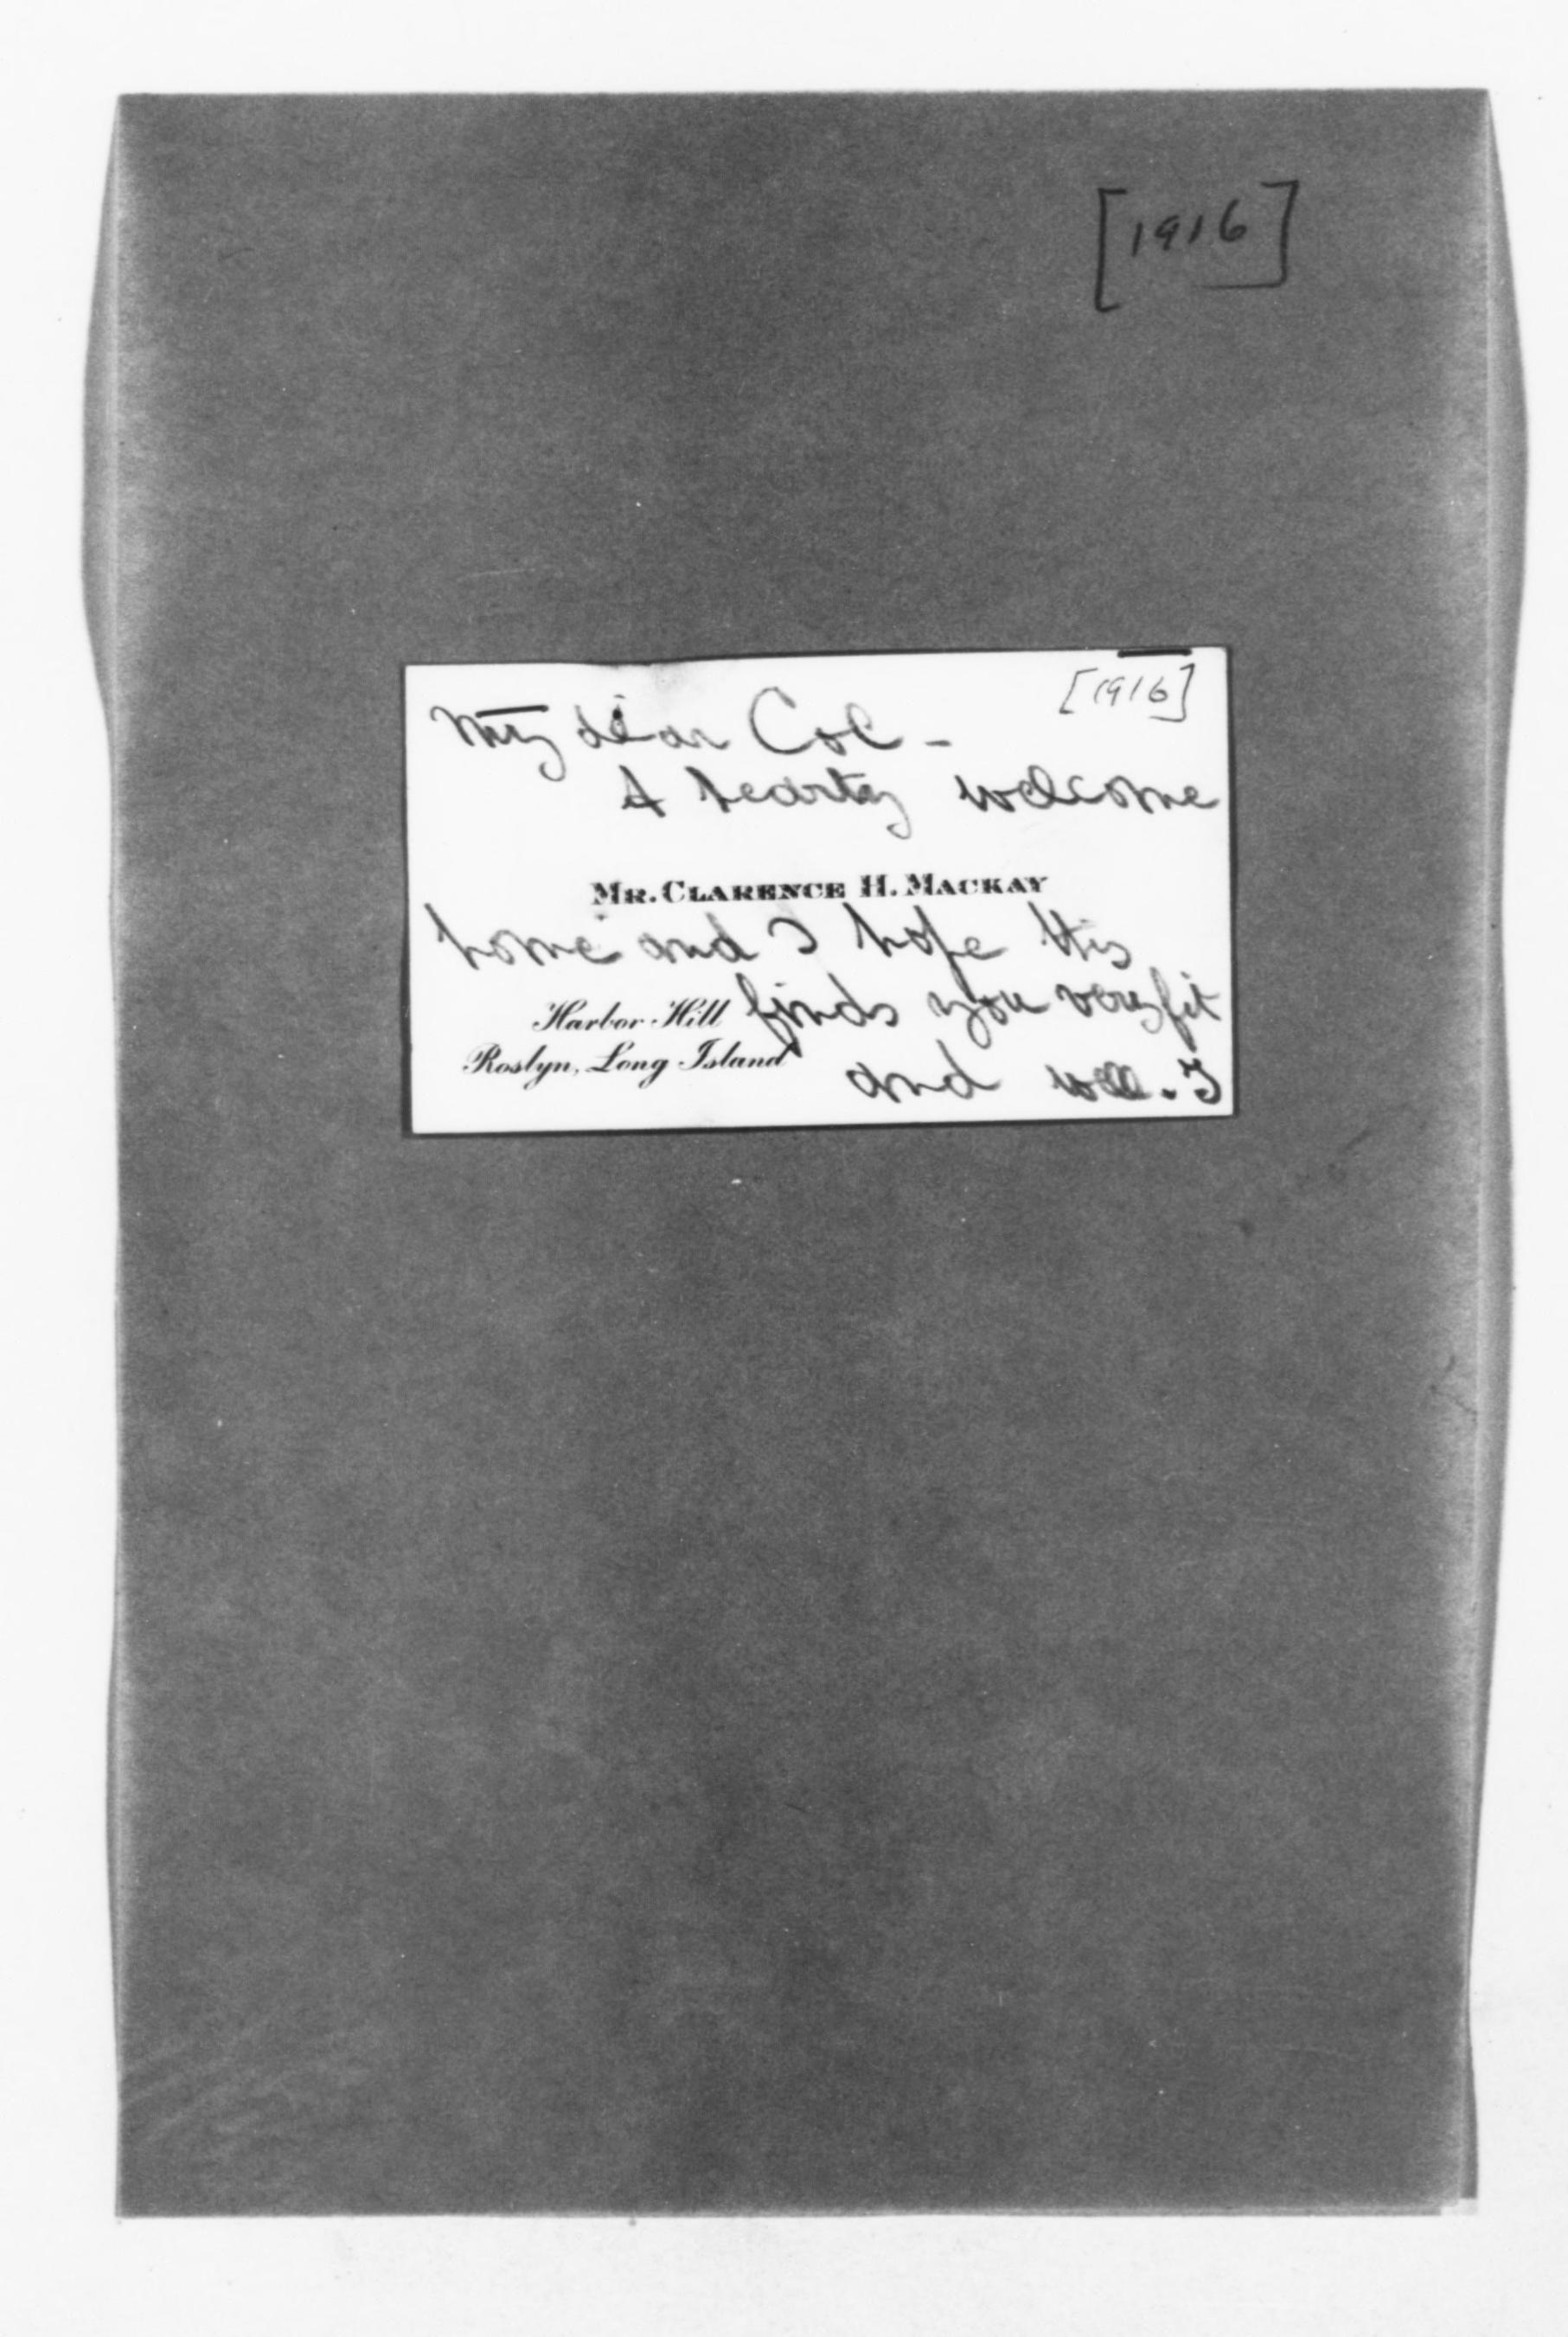 [1916]
[1916]
My dear Col -
A hearty welcome
MR. CLARENCE H. MACKAY
home and I hope this
Harbor Hill finds you very fit
Roslyn, Long Island and well. I